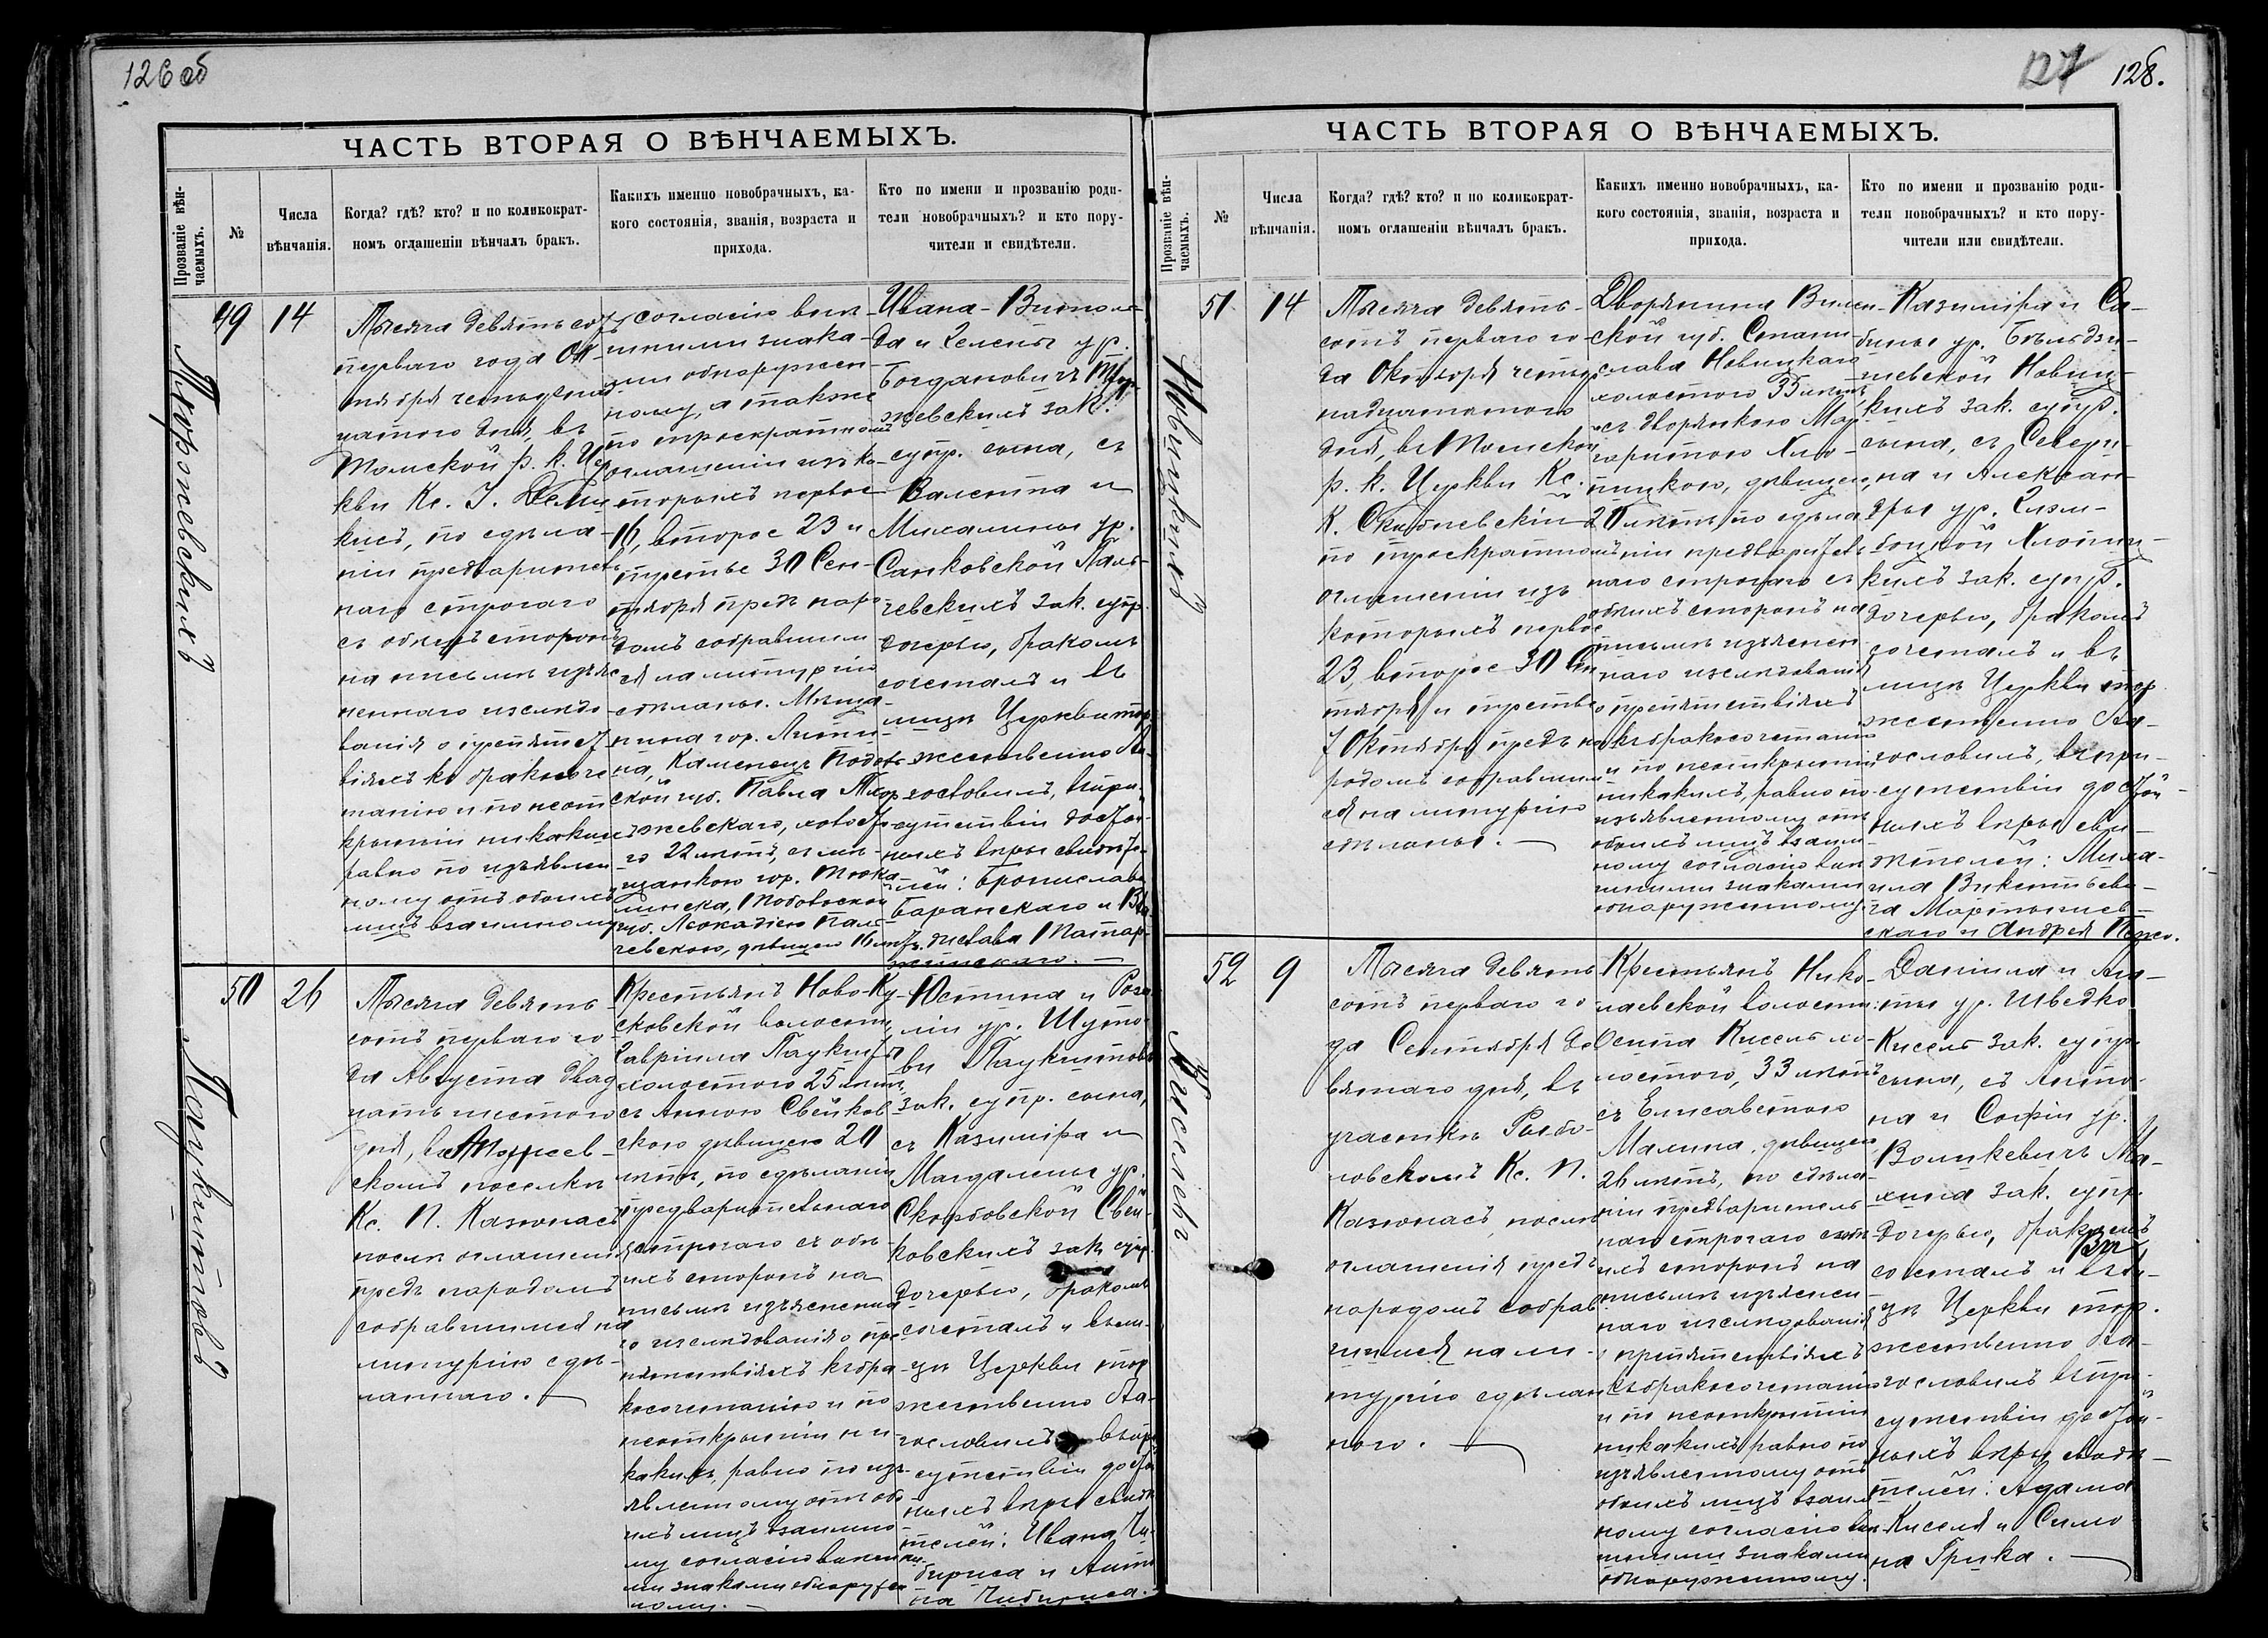 126 об
ЧАСТЬ ВТОРАЯ О ВѢНЧАЕМЫХЪ.
Прозваніе вѣн-
чаемыхъ.
№
Числа
вѣнчанія.
Когда? гдѣ? кто? и по коликократ-
номъ оглашеніи вѣнчалъ бракъ.
Какихъ именно новобрачныхъ, ка-
кого состоянія, званія, возраста и
прихода.
Кто по имени и прозванію роди-
тели новобрачныхъ? и кто пору-
чители и свидѣтели.
49
14
Тысяча девятьсотъ
перваго года Ок-
тября четырнад-
цатого дня, въ
Томской р. к. Цер
кви Кс. І. Деми
кисъ, по сдѣла-
ніи предваритель
наго строгаго
съ обѣихъ сторонъ
на письмѣ изъяс
неннаго изслѣдо-
ванія о препятст-
віяхъ къ бракосоче
танію и по неот
крытіи никакихъ
равно по изъявлен
ному отъ обоихъ
лицъ взаимному
согласію внѣ-
шними знака-
ми обнаружен-
ному, а также
по троекратномъ
оглашеніи изъ ко-
торыхъ первое
16, второе 23 и
третье 30 Сен-
тября предъ наро
домъ собравшим
ся на литургію
сдѣланы. Мѣща-
нина гор. Литы-
на, Каменецъ Подоль
ской губ. Павла
жевскаго, холосто
го 22 лѣтъ, съ мѣ-
щанкою гор. Тюка-
линска, Тобольской
губ. Леокадіею Паль
чевскою, дѣвицею 16 лѣтъ,
Ивана-Витоль
да и Елены ур.
Богдановичъ
жевскихъ зак.
супр. сына, съ
Валентина и
Михалины ур.
Санковской Паль-
чевскихъ зак. супр.
дочерью, бракомъ
сочеталъ и въ
лицѣ Церкви тор
жественно бла-
гословилъ, въ при
сутствіи достой-
ныхъ вѣры свидѣте-
лей: Бронислава
Баранскаго и Вла-
дислава
50
26
Тысяча девять-
сотъ перваго го-
да Августа двад
цать шестого
дня, въ
скомъ поселкѣ
Кс. П. Казюнасъ
послѣ оглашенія
предъ народомъ
собравшимся на
литургію сдѣ-
ланнаго.
Крестьянъ Ново-Ку-
сковской волости,
Гавріила Паукшта
холостого 25 лѣтъ,
съ Анною Свейков
скою дѣвицею 20
лѣтъ, по сдѣланіи
предварительнаго
строгаго съ обѣ-
ихъ сторонъ на
письмѣ изъясненна
го изслѣдованія о пре
пятствіяхъ къ бра
косочетанію и по
неоткрытіи ни-
какихъ, равно по изъ-
явленному отъ обо
ихъ лицъ взаимно-
му согласію внѣшни
ми знаками обнаружен
ному.
Юстина и Роза-
ліи ур. Шуто-
вы Паукштовъ
зак. супр. сына,
съ Казиміра и
Магдалены ур.
Скорбовской Свей-
ковскихъ зак. супр.
дочерью, бракомъ
сочеталъ и въ ли-
цѣ Церкви тор
жественно бла-
гословилъ въ при
сутствіи достой
ныхъ вѣры свидѣ
телей: Ивана Чи-
бириса и Анто
на Чибириса.
Паукштовъ
127 128.
ЧАСТЬ ВТОРАЯ О ВѢНЧАЕМЫХЪ.
Прозваніе вѣн-
чаемыхъ.
№
Числа
вѣнчанія.
Когда? гдѣ? кто? и по коликократ-
номъ оглашеніи вѣнчалъ бракъ.
Какихъ именно новобрачныхъ, ка-
кого состоянія, званія, возраста и
прихода.
Кто по имени и прозванію роди-
тели новобрачныхъ? и кто пору-
чители или свидѣтели.
Новицкихъ
51
14
Тысяча девять-
сотъ перваго го-
да Октября четыр
надцатого
дня, въ Томской
р. к. Церкви Кс.
по троекратномъ
оглашеніи изъ
которыхъ первое
23, второе 30 Сен
тября и третье
7 Октября предъ на
родомъ собравшим
ся на литургію
сдѣланы.
Дворянина Вилен-
ской губ. Стани-
слава Новицкаго
холостого 35 лѣтъ,
съ дворянкою Мар
гаритою Хло-
пицкою, дѣвицею,
20 лѣтъ, по сдѣла
ніи предваритель
наго строгаго съ
обѣихъ сторонъ на
письмѣ изъяснен
наго изслѣдованія
о препятствіяхъ
къ бракосочетанію
и по неоткрытіи
никакихъ, равно по
изъявленному отъ
обоихъ лицъ взаим
ному согласію внѣ
шними знаками
обнаруженному.
Казиміра и Са-
бины ур.
Новиц-
кихъ зак. супр.
сына, съ Севери-
на и Алексан-
дры ур.
Хлопиц-
кихъ зак. супр.
дочерью, бракомъ
сочеталъ и въ
лицѣ Церкви тор
жественно бла-
гословилъ, въ при-
сутствіи достой-
ныхъ вѣры сви-
дѣтелей: Миха-
ила Викентьеви-
ча Мартышев-
скаго и Андрея
Кисель
52
9
Тысяча девять
сотъ перваго го-
да Сентября де
вятаго дня, въ
участкѣ Рыбо-
ловскомъ Кс. П.
Казюнасъ, послѣ
оглашенія предъ
народомъ собрав
шимся на ли-
тургію сдѣлан
наго.
Крестьянъ Нико-
лаевской волости:
Осипа Кисель хо-
лостого, 33 лѣтъ
съ Елисаветою
Малина, дѣвицею,
26 лѣтъ, по сдѣла-
ніи предваритель
наго строгаго съ обѣ
ихъ сторонъ на
письмѣ изъяснен
наго изслѣдованія
о препятствіяхъ
къ бракосочетанію
и по неоткрытіи
никакихъ равно по
изъявленному отъ
обоихъ лицъ взаим
ному согласію внѣ
шними знаками
обнаруженному.
Даніила и Ага-
ты ур. Шведко
Кисель зак. супр.
сына, съ Анто-
на и Софіи ур.
Волынкевичъ Ма-
лина зак. супр.
дочерью, бракомъ
сочеталъ и въ ли-
цѣ Церкви тор.
жественно бла-
гословилъ въ при-
сутствіи достой-
ныхъ вѣры свидѣ-
телей: Адама
Киселя и Симо
на Грика.